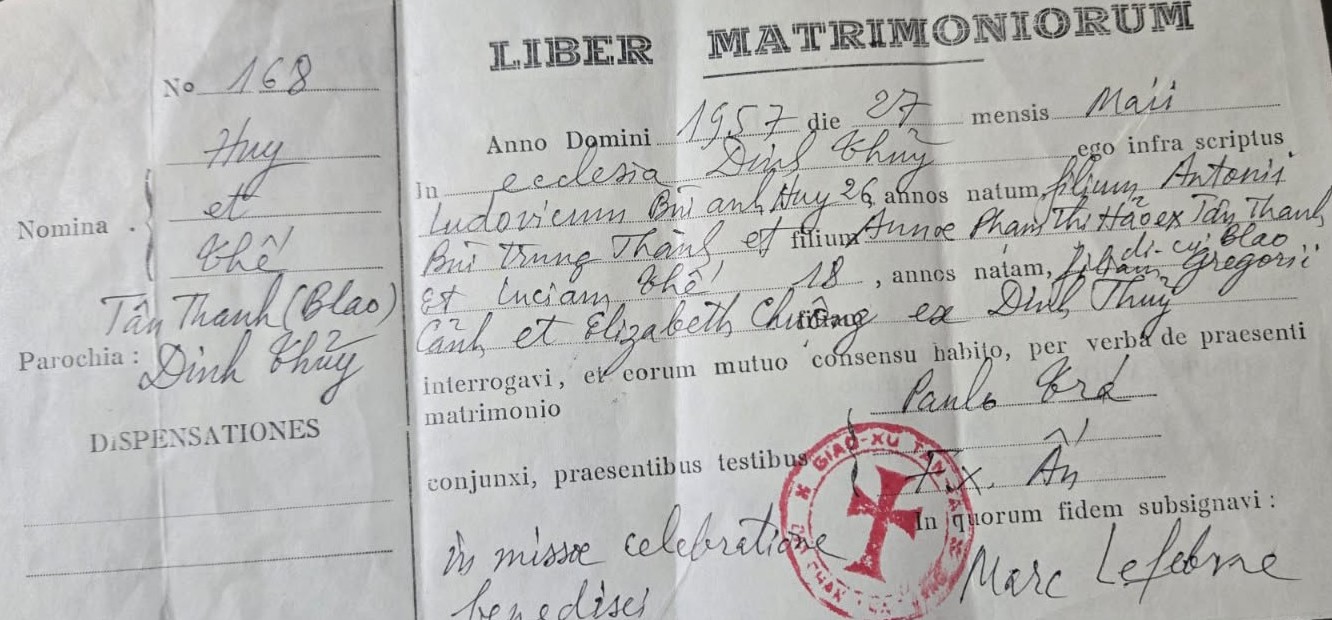 No 168
Nomina
Huy
et
Thế
Tân Thanh (Blao)
Parochia : Dinh Thủy
DISPENSATIONES
LIBER MATRIMONIORUM
Anno Domini 1957 die 27 mensis Maii
In ecclesia Dinh Thủy ego infra scriptus
Ludovicum Bùi anh Huy 26 annos natum, filium Antonii
Bùi Trung Thành et filium Annae Phạm Thi Hảo ex Tân Thanh
di-cư, Blao
Et Luciam Thế 18 , annos natam, filiam Gregorii
Cảnh et Elizabeth Chương ex Dinh Thủy
interrogavi, et eorum mutuo consensu habito, per verba de praesenti
matrimonio
Paulo Trá
conjunxi, praesentibus testibus
F.x. Ấn
In quorum fidem subsignavi :
in missae celebratione
benedixi
Marc Lefebvre
GIAO-XU